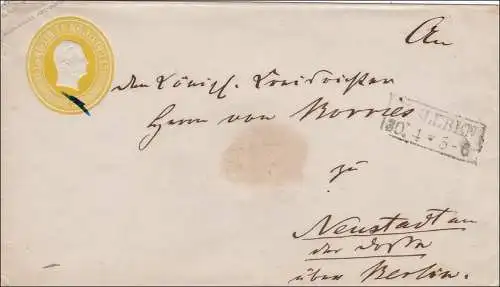 An
den Königl. Kreisrichter
Herrn von Borries
30. 4 * 5-6
zu
Neustadt an
der Dosse
über Berlin.